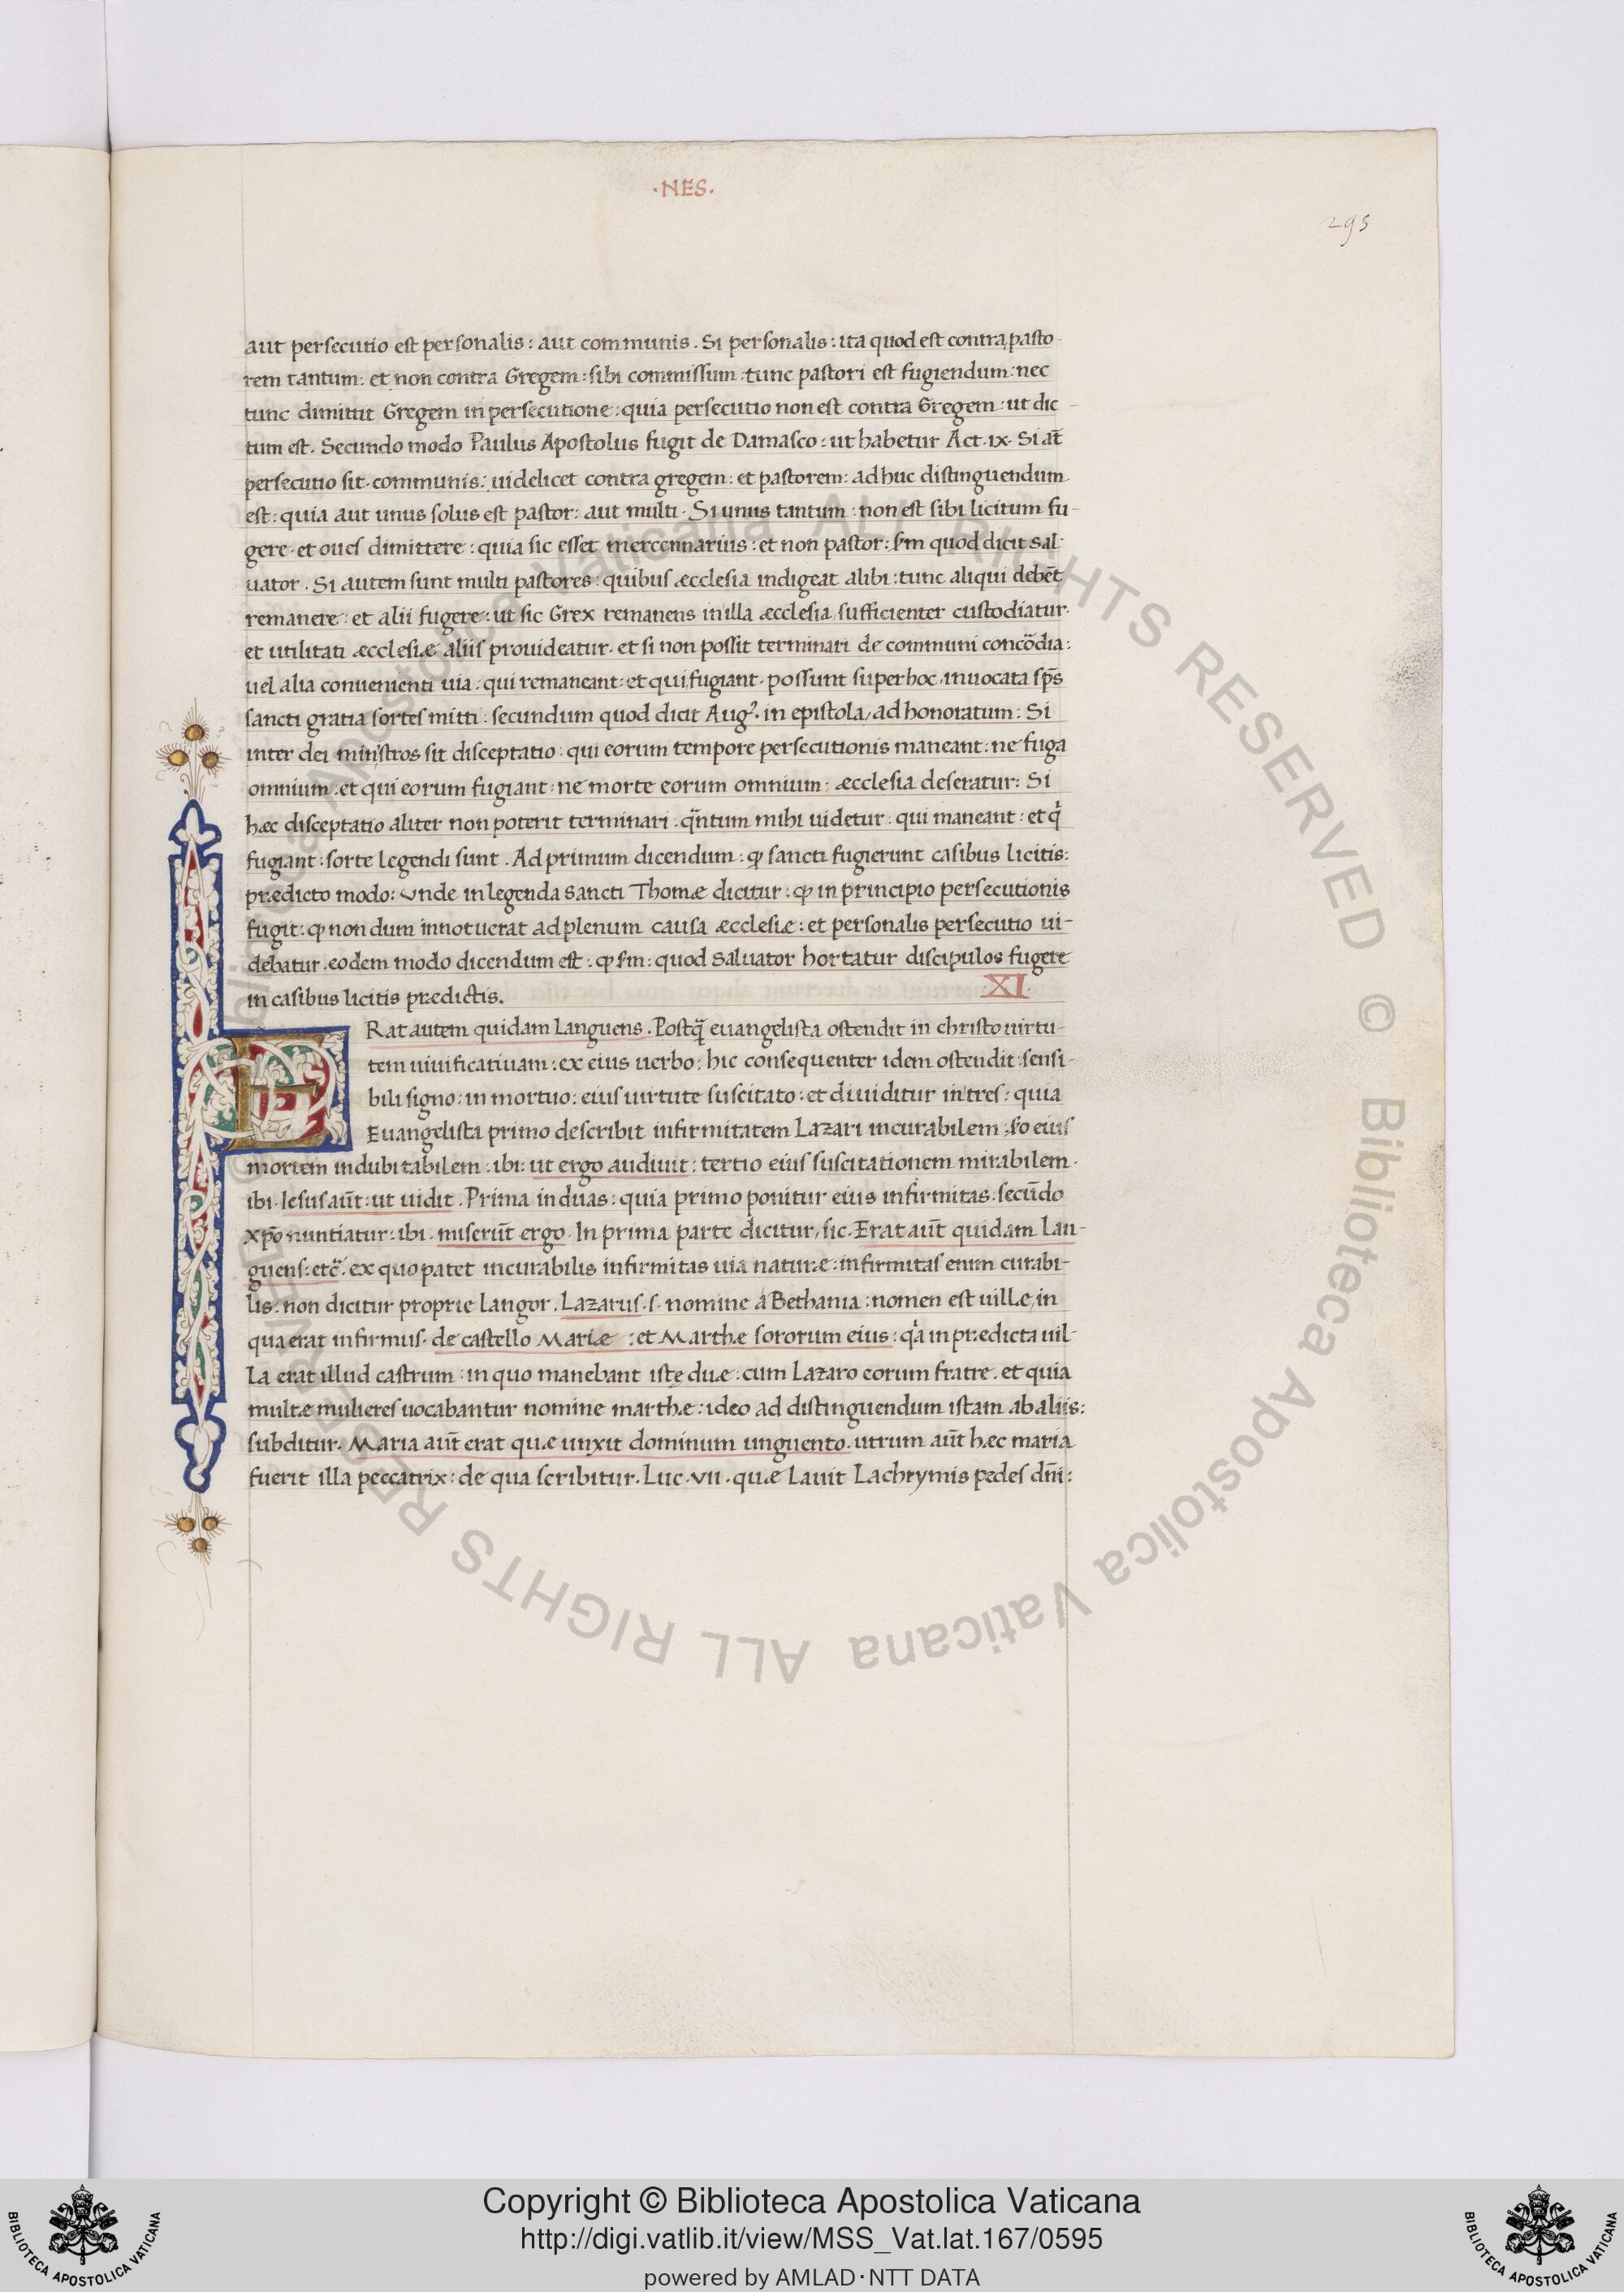 ·NES·
295
aut persecutio est personalis: aut communis. Si personalis: ita quod est contra pasto-
rem tantum: et non contra Gregem: sibi commissum: tunc pastori est fugiendum: nec
tunc dimittit Gregem in persecutione: quia persecutio non est contra Gregem: ut dic-
tum est. Secundo modo Paulus Apostolus fugit de Damasco: ut habetur Act. ix. Si aūt
persecutio sit. communis: uidelicet contra gregem: et pastorem: adhuc distinguendum
est: quia aut unus solus est pastor: aut multi. Si unus tantum: non est sibi licitum fu-
gere. et oues dimittere: quia sic esset mercennarius: et non pastor: s̄m quod dicit Sal-
uator. Si autem sunt multi pastores: quibus æcclesia indigeat alibi: tunc aliqui debēt
remanere: et alii fugere: ut sic Grex remanens in illa æcclesia, sufficienter custodiatur.
et utilitati æcclesiæ aliis prouideatur. et si non possit terminari de communi concōdia:
uel alia conuenienti uia: qui remaneant: et qui fugiant. possunt super hoc, inuocata sp̄s
sancti gratia sortes mitti: secundum quod dicit Augꝰ. in epistola, ad honoratum: Si
inter dei ministros sit disceptatio: qui eorum tempore persecutionis maneant: ne fuga
omnium. et qui eorum fugiant: ne morte eorum omnium: æcclesia deseratur: Si
hæc disceptatio aliter non poterit terminari: q̄ntum mihi uidetur: qui maneant: et qⁱ
fugiant: sorte legendi sunt. Ad primum dicendum: ꝙ sancti fugierunt casibus licitis:
prædicto modo: Vnde in legenda sancti Thomæ dicitur: ꝙ in principio persecutionis
fugit: ꝙ non dum innotuerat ad plenum causa æcclesiæ: et personalis persecutio ui-
debatur. eodem modo dicendum est: ꝙ s̄m: quod saluator hortatur discipulos fugere
in casibus licitis prædictis.
XI.
ERat autem quidam Languens. Postq̄ euangelista ostendit in christo uirtu-
tem uiuificatiuam: ex eius uerbo: hic consequenter idem ostendit: sensi-
bili signo: in mortuo: eius uirtute suscitato: et diuiditur in tres: quia
Euangelista primo describit infirmitatem Lazari incurabilem: s̄o eius
mortem indubitabilem: ibi: ut ergo audiuit: tertio eius suscitationem mirabilem.
ibi. Iesus aūt: ut uidit. Prima in duas: quia primo ponitur eius infirmitas: secūdo
xp̄o nuntiatur: ibi. miserūt ergo. In prima parte dicitur, sic. Erat aūt quidam Lan-
guens: etc̄. ex quo patet incurabilis infirmitas uia naturæ: infirmitas enim curabi-
lis: non dicitur proprie Langor. Lazarus. s. nomine a Bethania: nomen est uillæ, in
qua erat infirmus. de castello Mariæ : et Marthæ sororum eius: qᵃ in prædicta uil-
La erat illud castrum: in quo manebant istę duæ: cum Lazaro eorum fratre. et quia
multæ mulieres uocabantur nomine marthæ: ideo ad distinguendum istam ab aliis:
subditur. Maria aūt erat quæ unxit dominum unguento. utrum aūt hæc maria
fuerit illa peccatrix: de qua scribitur. Luc. vii. quæ Lauit Lachrymis pedes dn̄i:
© Biblioteca Apostolica Vaticana ALL RIGHTS RESERVED © Biblioteca Apostolica Vaticana ALL RIGHTS RESERVED
BIBLIOTECA APOSTOLICA VATICANA
Copyright © Biblioteca Apostolica Vaticana
http://digi.vatlib.it/view/MSS_Vat.lat.167/0595
powered by AMLAD·NTT DATA
BIBLIOTECA APOSTOLICA VATICANA